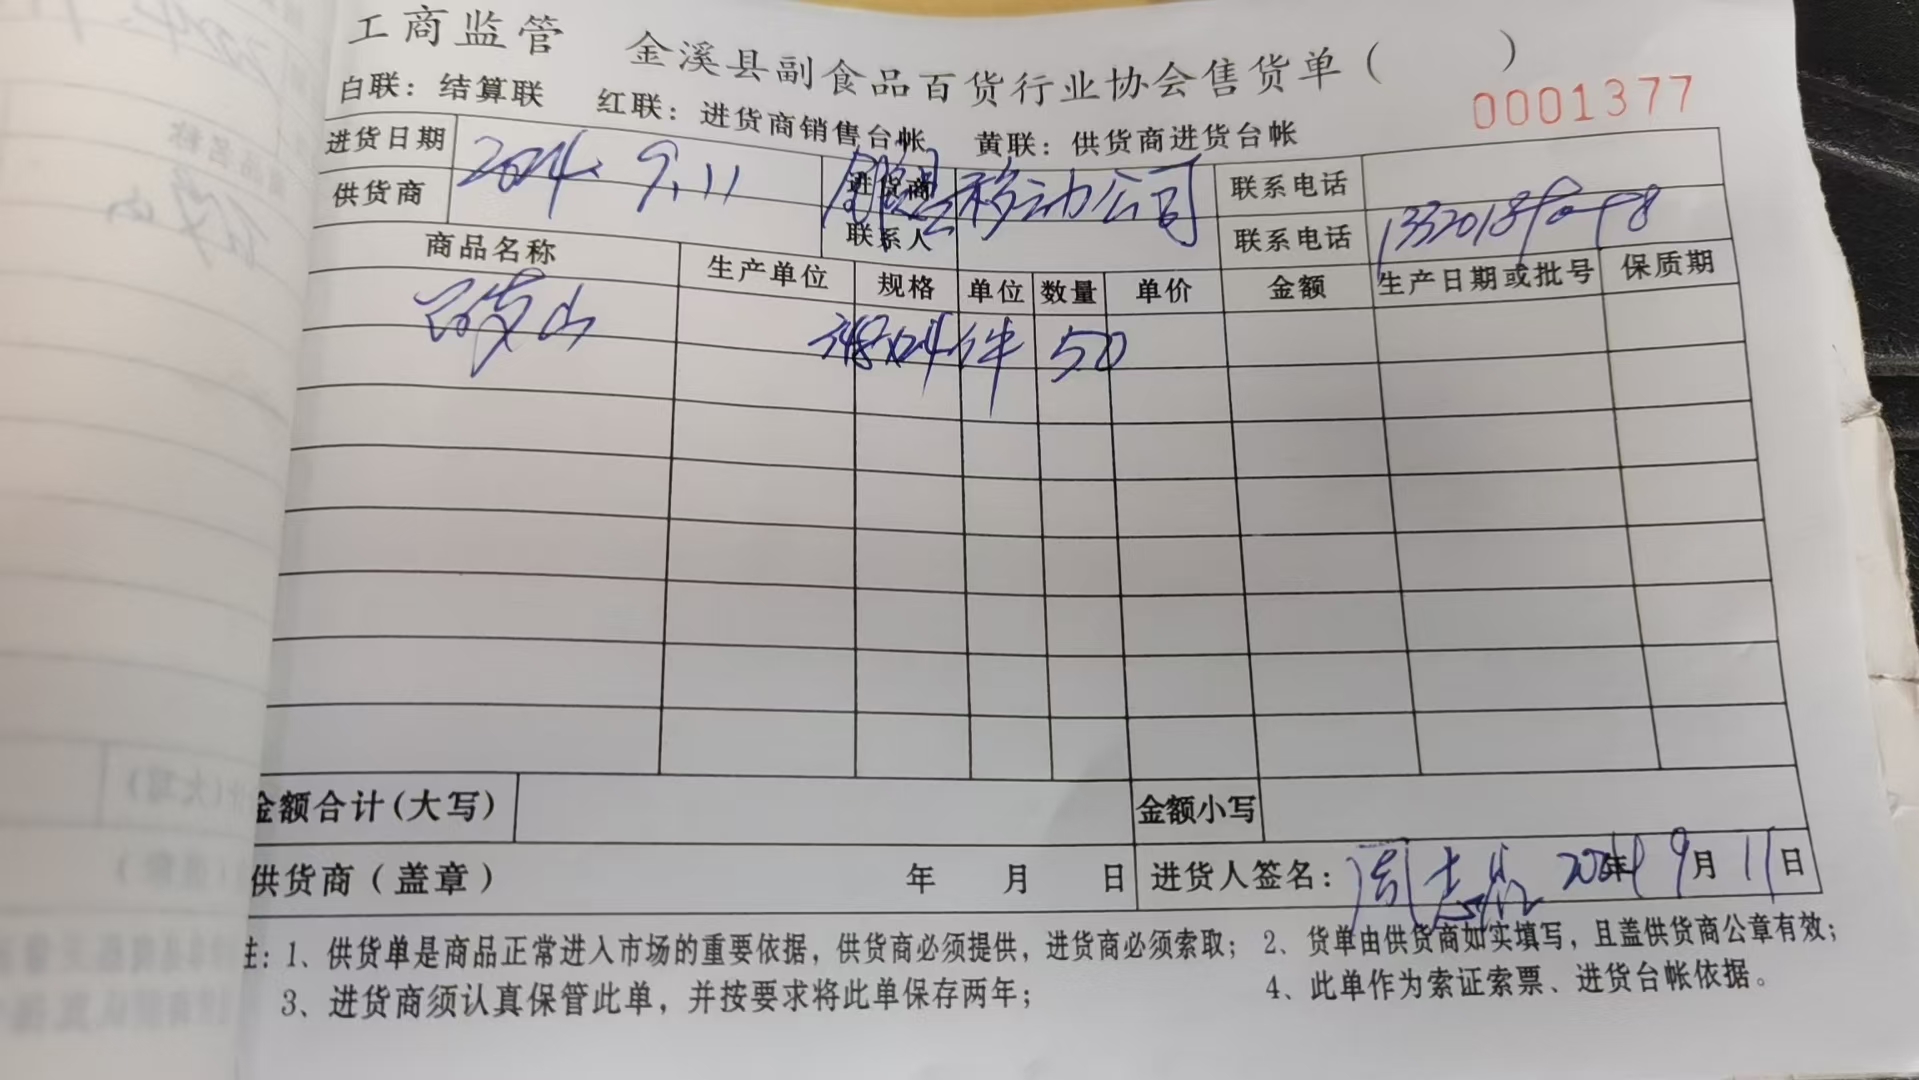 工商监管 金溪县副食品百货行业协会售货单（ ）
白联：结算联 红联：进货商销售台帐 黄联：供货商进货台帐 0001377
进货日期 2024.9.11 进货商 移动公司 联系电话
供货商 联系人 联系电话
商品名称 生产单位 规格 单位 数量 单价 金额 生产日期或批号 保质期
件 50
金额合计(大写) 金额小写
供货商（盖章） 年 月 日 进货人签名： 2024年 9月 11日
注：1、供货单是商品正常进入市场的重要依据，供货商必须提供，进货商必须索取； 2、货单由供货商如实填写，且盖供货商公章有效；
3、进货商须认真保管此单，并按要求将此单保存两年； 4、此单作为索证索票、进货台帐依据。